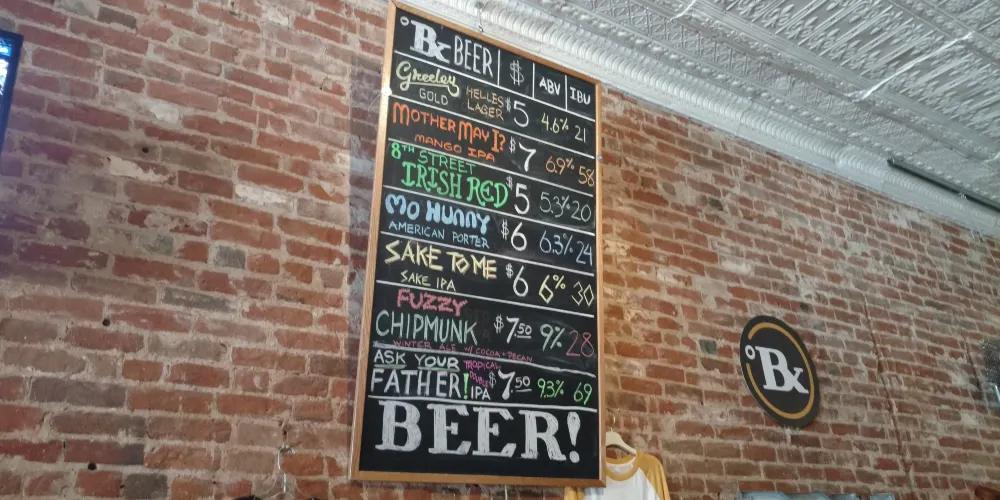 °Bx BEER $ ABV IBU
Greeley
GOLD HELLES
LAGER $5 4.6% 21
MOTHER MAY I?
MANGO IPA $7 6.9% 58
8TH STREET
IRISH RED $5 5.3% 20
MO HUNNY
AMERICAN PORTER $6 6.3% 24
SAKE TO ME
SAKE IPA $6 6% 30
FUZZY
CHIPMUNK $7.50 9% 28
WINTER ALE w/ COCOA + PECAN
ASK YOUR TROPICAL
FATHER! DOUBLE
IPA $7.50 9.3% 69
BEER!
°Bx